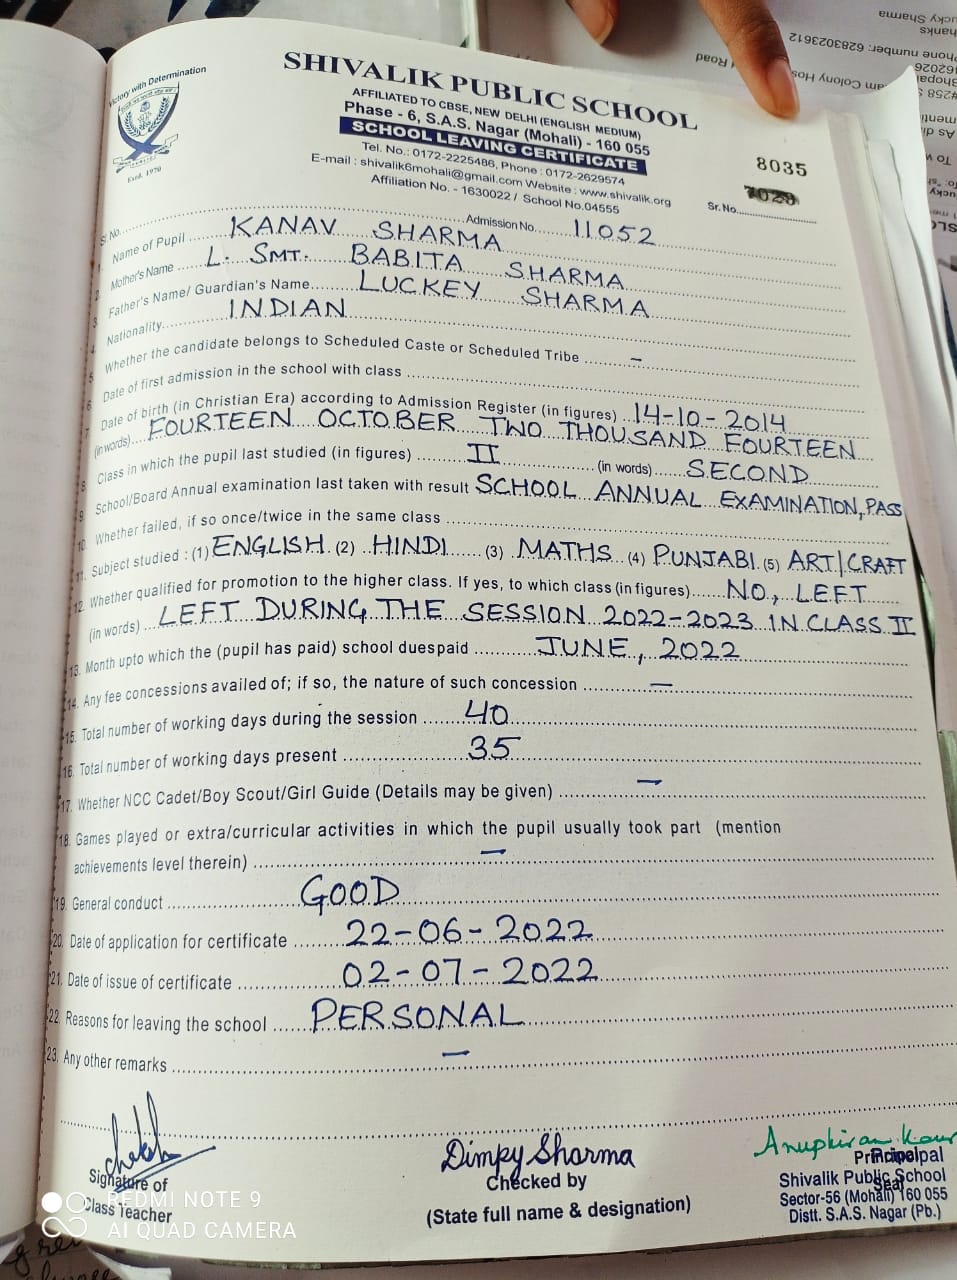 Victory with Determination
Estd. 1970
SHIVALIK PUBLIC SCHOOL
AFFILIATED TO CBSE, NEW DELHI (ENGLISH MEDIUM)
Phase - 6, S.A.S. Nagar (Mohali) - 160 055
SCHOOL LEAVING CERTIFICATE
Tel. No.: 0172-2225486, Phone : 0172-2629574
E-mail : shivalik6mohali@gmail.com Website : www.shivalik.org
Affiliation No. - 1630022 / School No.04555
8035
Sr. No.
Sr. No. Admission No. 11052
1. Name of Pupil KANAV SHARMA
2. Mother's Name L. SMT. BABITA SHARMA
3. Father's Name/ Guardian's Name LUCKEY SHARMA
4. Nationality INDIAN
5. Whether the candidate belongs to Scheduled Caste or Scheduled Tribe –
6. Date of first admission in the school with class
7. Date of birth (in Christian Era) according to Admission Register (in figures) 14-10-2014
(in words) FOURTEEN OCTOBER TWO THOUSAND FOURTEEN
8. Class in which the pupil last studied (in figures) II (in words) SECOND
9. School/Board Annual examination last taken with result SCHOOL ANNUAL EXAMINATION, PASS
10. Whether failed, if so once/twice in the same class
11. Subject studied : (1) ENGLISH (2) HINDI (3) MATHS (4) PUNJABI (5) ART/CRAFT
12. Whether qualified for promotion to the higher class. If yes, to which class (in figures) NO, LEFT
(in words) LEFT DURING THE SESSION 2022-2023 IN CLASS II
13. Month upto which the (pupil has paid) school duespaid JUNE, 2022
14. Any fee concessions availed of; if so, the nature of such concession –
15. Total number of working days during the session 40
16. Total number of working days present 35
17. Whether NCC Cadet/Boy Scout/Girl Guide (Details may be given) –
18. Games played or extra/curricular activities in which the pupil usually took part (mention
achievements level therein) –
19. General conduct GOOD
20. Date of application for certificate 22-06-2022
21. Date of issue of certificate 02-07-2022
22. Reasons for leaving the school PERSONAL
23. Any other remarks –
Signature of
Class Teacher
Dimpy Sharma
Checked by
(State full name & designation)
Anupkiran Kaur
Principal
Principal
Seal
Shivalik Public School
Sector-56 (Mohali) 160 055
Distt. S.A.S. Nagar (Pb.)
REDMI NOTE 9
AI QUAD CAMERA
Lucky Sharma
Phone number: 6283023612